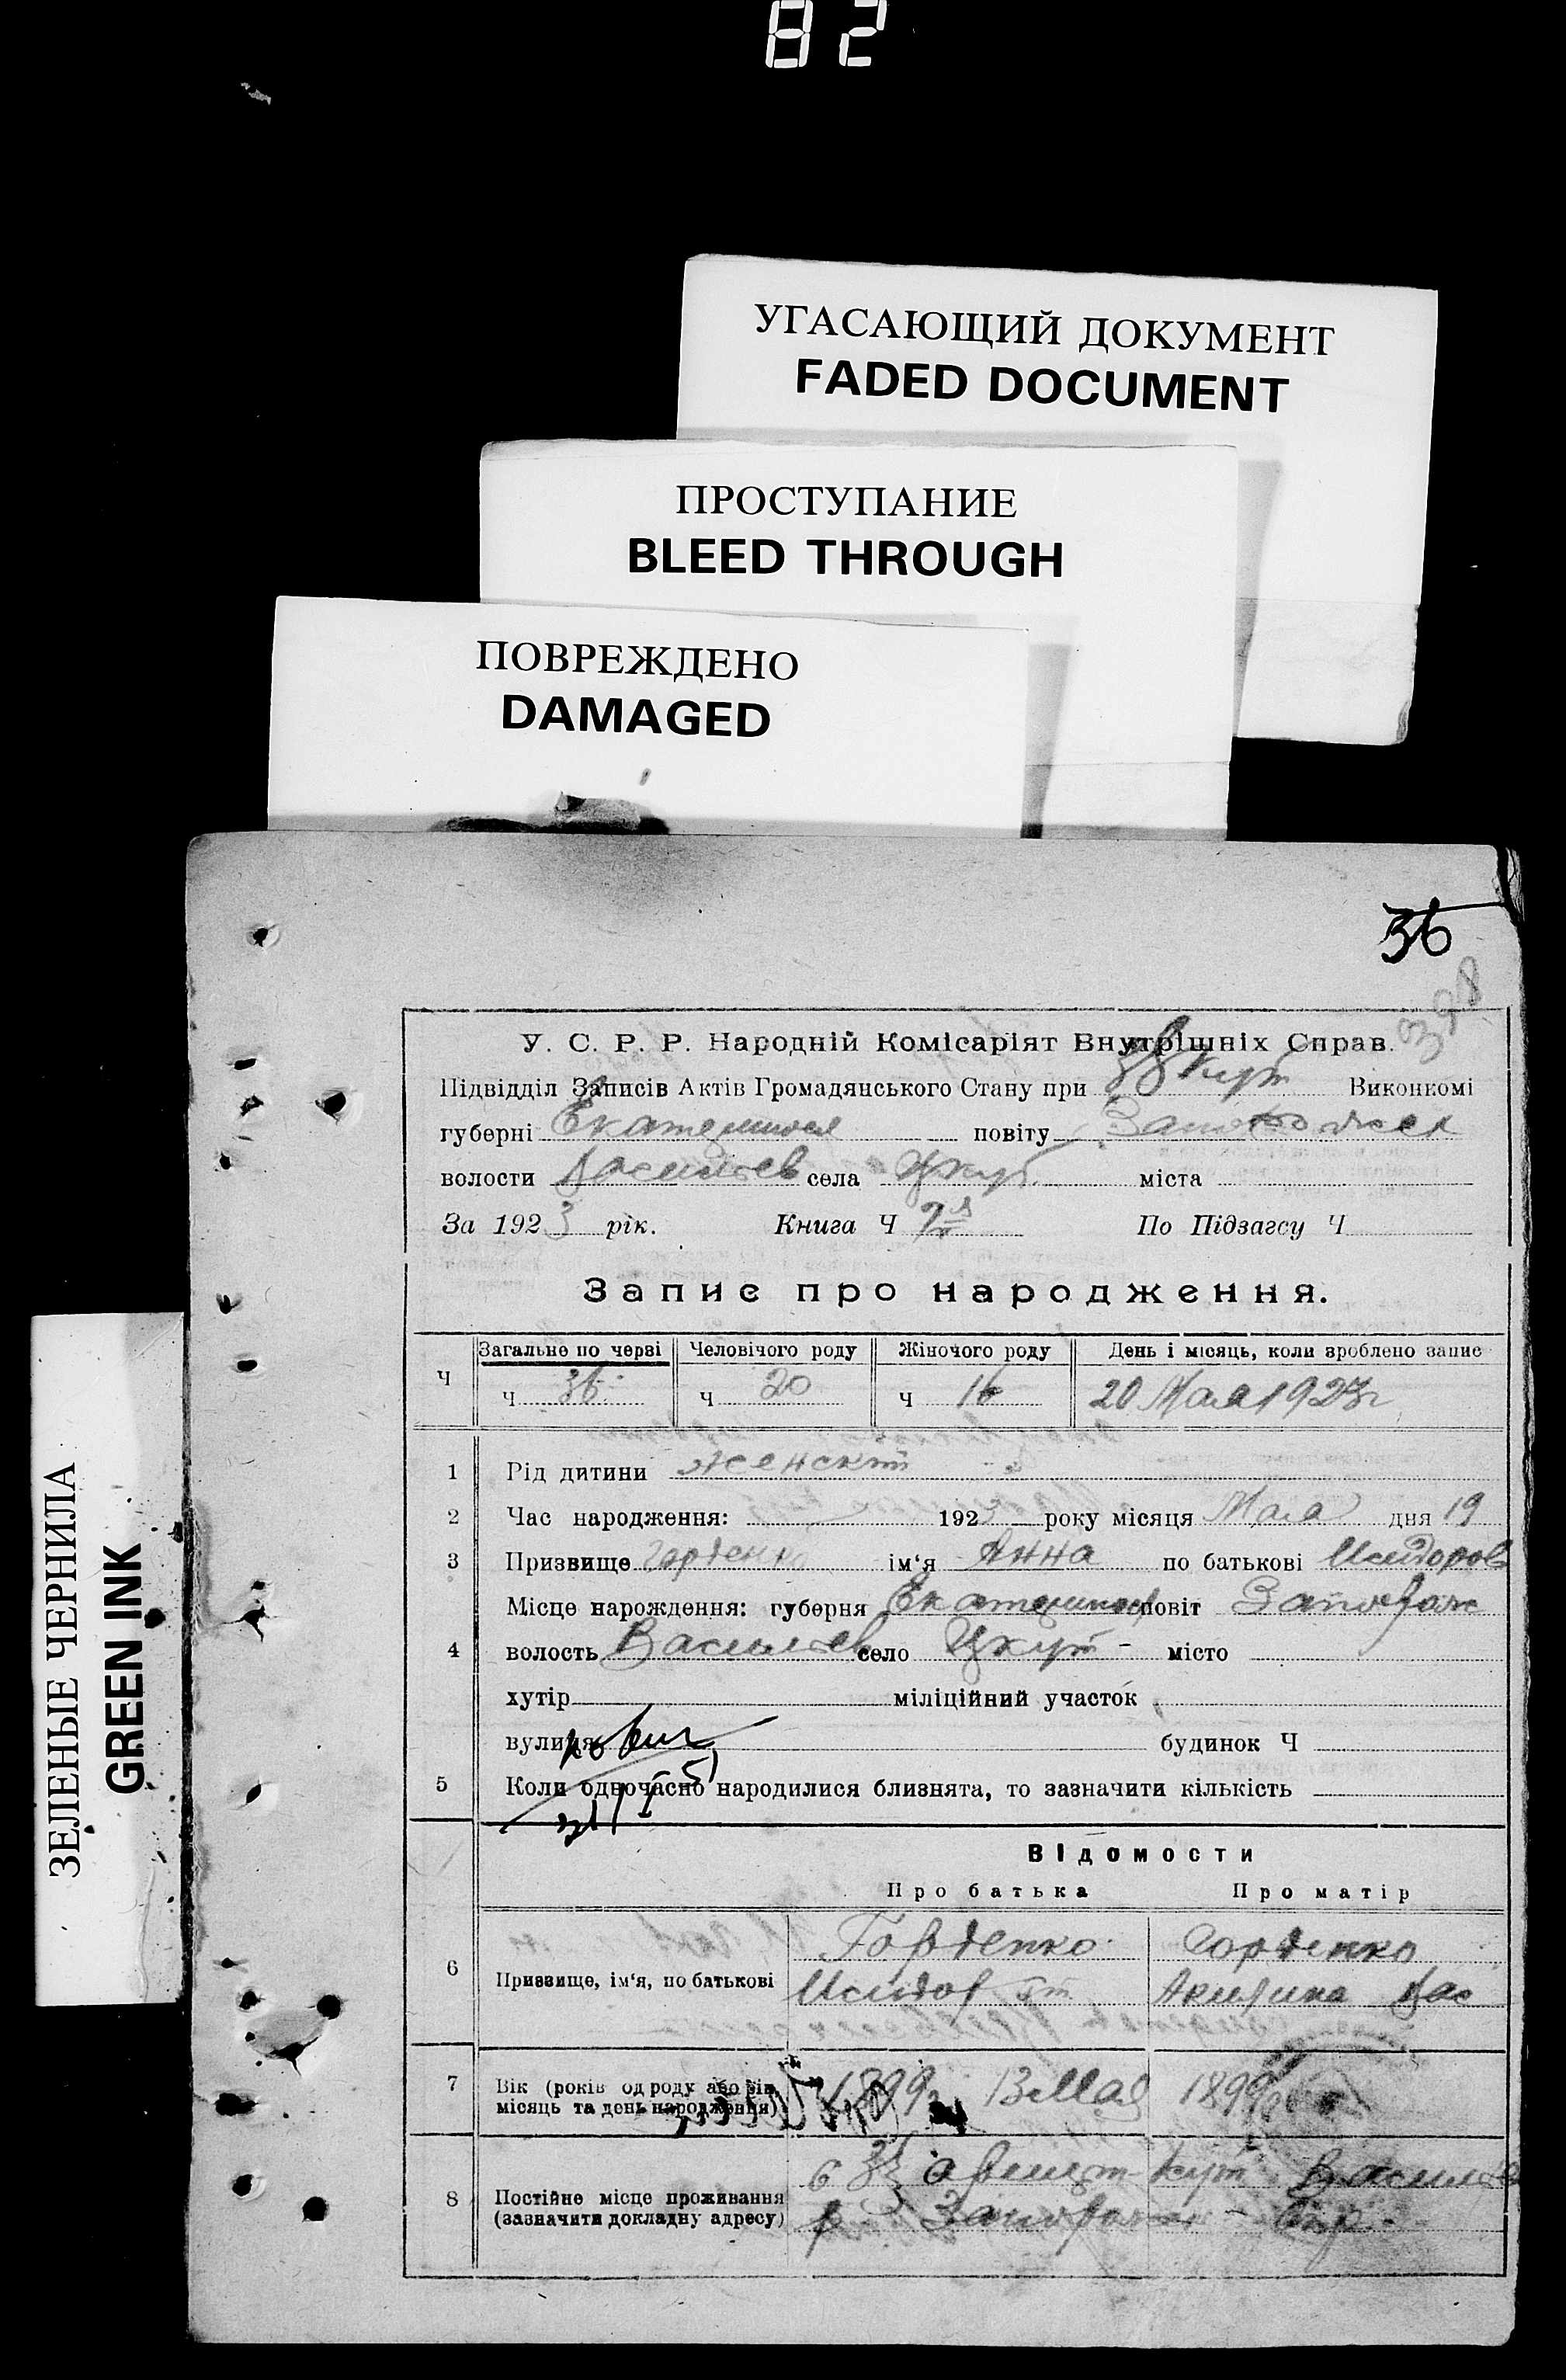 82
УГАСАЮЩИЙ ДОКУМЕНТ
FADED DOCUMENT
ПРОСТУПАНИЕ
BLEED THROUGH
ПОВРЕЖДЕНО
DAMAGED
ЗЕЛЕНЫЕ ЧЕРНИЛА
GREEN INK
36
398
У. С. Р. Р. Народній Комісаріят Внутрішніх Справ.
Підвідділ Записів Актів Громадянського Стану при Виконкомі
губерні повіту
волости Василиев села міста
За 1923 рік. Книга Ч По Підзагсу Ч
Запис про народження.
Загальне по черві Человічого роду Жіночого роду День і місяць, коли зроблено запис
Ч Ч 36 Ч 20 Ч 16 20 Мая 1923 г
1 Рід дитини женский
2 Час народження: 1923 року місяця Мая дня 19
3 Призвище Горденко ім‘я Анна по батькові Исидоров
Місце нарождення: губерня Екатеринос повіт Запорож
4 волость Василиев село місто
хутір міліційний участок
вулиця будинок Ч
5 Коли одночасно народилися близнята, то зазначити кількість
Відомости
Про батька Про матір
6 Призвище, ім‘я, по батькові Горденко Горденко
Исидор Акилина Вас
7 Вік (років од роду або рік, місяць та день народження) 1899 г 13 Мая 1899
8 Постійне місце проживання (зазначити докладну адресу) кут Василиев
Запорож